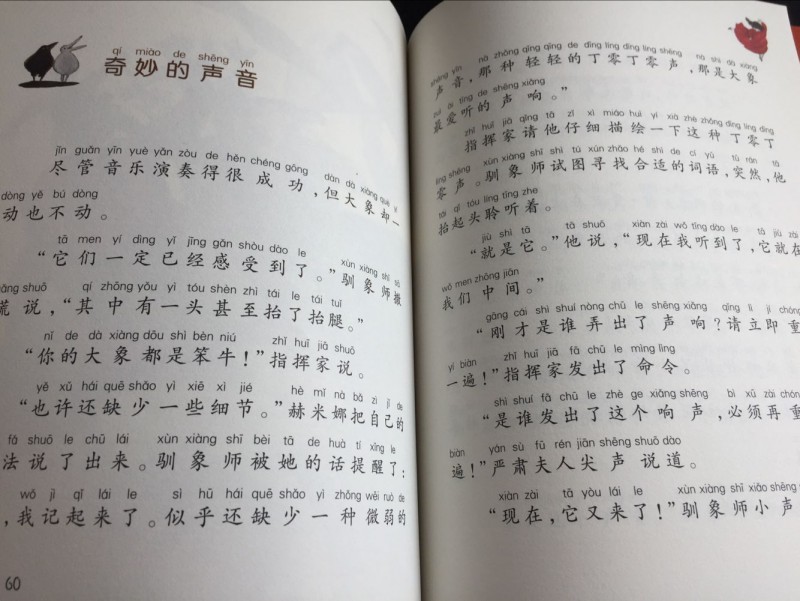 qí miào de shēng yīn
奇妙的声音
jīn guǎn yīn yuè yǎn zòu de hěn chéng gōng dàn dà xiàng què yí
尽管音乐演奏得很成功,但大象却一
dòng yě bú dòng
动也不动。
tā men yí dìng yǐ jīng gǎn shòu dào le xùn xiàng shī sā
“它们一定已经感受到了。”驯象师撒
huǎng shuō qí zhōng yǒu yì tóu shèn zhì tái le tái tuǐ
谎说,“其中有一头甚至抬了抬腿。”
nǐ de dà xiàng dōu shì bèn niú zhǐ huī jiā shuō
“你的大象都是笨牛!”指挥家说。
yě xǔ hái quē shǎo yì xiē xì jié hè mǐ nà bǎ zì jǐ de
“也许还缺少一些细节。”赫米娜把自己的
fǎ shuō le chū lái xùn xiàng shī bèi tā de huà tí xǐng le
法说了出来。驯象师被她的话提醒了:
wǒ jì qǐ lái le sì hū hái quē shǎo yì zhǒng wēi ruò de
,我记起来了。似乎还缺少一种微弱的
60
shēng yīn nà zhǒng qīng qīng de dīng líng dīng líng shēng nà shì dà xiàng
声音,那种轻轻的丁零丁零声,那是大象
zuì ài tīng de shēng xiǎng
最爱听的声响。”
zhǐ huī jiā qǐng tā zǐ xì miáo huì yí xià zhè zhǒng dīng líng dīng
指挥家请他仔细描绘一下这种丁零丁
líng shēng xùn xiàng shī shì tú xún zhǎo hé shì de cí yǔ tū rán tā
零声。驯象师试图寻找合适的词语,突然,他
tái qǐ tóu líng tīng zhe
抬起头聆听着。
jiù shì tā tā shuō xiàn zài wǒ tīng dào le tā jiù zài
“就是它。”他说,“现在我听到了,它就在
wǒ men zhōng jiān
我们中间。”
gāng cái shì shuí nòng chū le shēng xiǎng qǐng lì jí chóng
“刚才是谁弄出了声响?请立即重
yí biàn zhǐ huī jiā fā chū le mìng lìng
一遍!”指挥家发出了命令。
shì shuí fā chū le zhè ge xiǎng shēng bì xū zài chóng
“是谁发出了这个响声,必须再重
biàn yán sù fū rén jiān shēng shuō dào
遍!”严肃夫人尖声说道。
xiàn zài tā yòu lái le xùn xiàng shī xiǎo shēng
“现在,它又来了!”驯象师小声